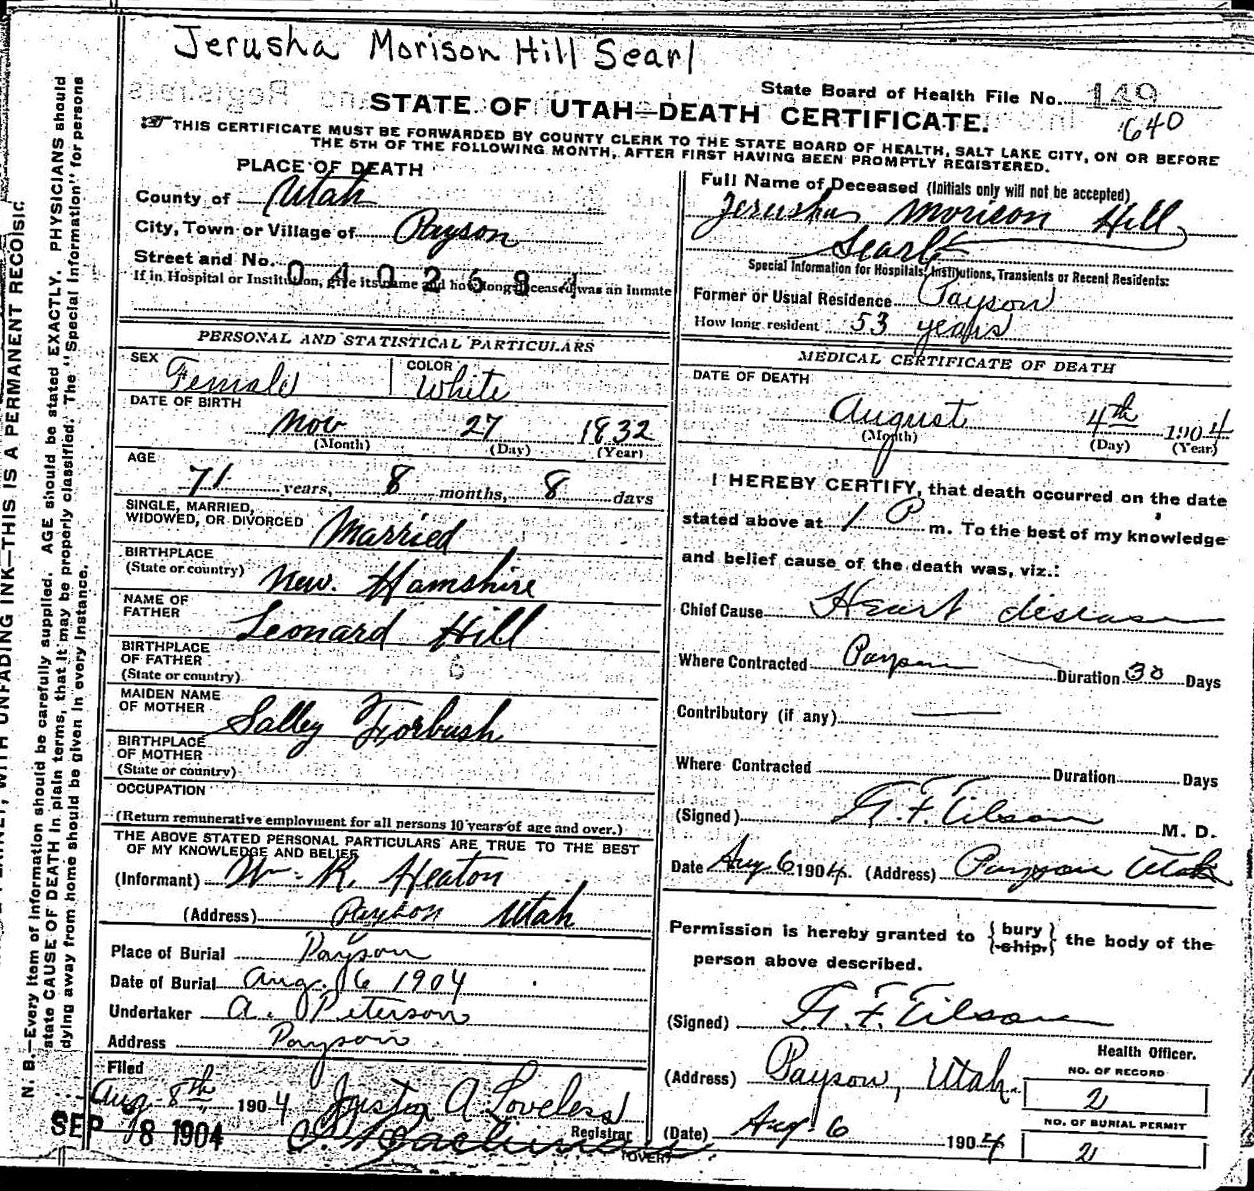 Jerusha Morison Hill Searl
State Board of Health File No. 149
640
STATE OF UTAH—DEATH CERTIFICATE.
THIS CERTIFICATE MUST BE FORWARDED BY COUNTY CLERK TO THE STATE BOARD OF HEALTH, SALT LAKE CITY, ON OR BEFORE
THE 5TH OF THE FOLLOWING MONTH, AFTER FIRST HAVING BEEN PROMPTLY REGISTERED.
PLACE OF DEATH
County of Utah
City, Town or Village of Payson
Street and No.
If in Hospital or Institution, give its name and how long deceased was an Inmate
Full Name of Deceased (Initials only will not be accepted)
Jerusha Morison Hill
Searle
Special Information for Hospitals, Institutions, Transients or Recent Residents:
Former or Usual Residence Payson
How long resident 53 years
PERSONAL AND STATISTICAL PARTICULARS
SEX Female COLOR White
DATE OF BIRTH
Nov 27 1832
(Month) (Day) (Year)
AGE
71 years, 8 months, 8 days
SINGLE, MARRIED,
WIDOWED, OR DIVORCED Married
BIRTHPLACE
(State or country) New. Hamshire
NAME OF
FATHER Leonard Hill
BIRTHPLACE
OF FATHER
(State or country)
MAIDEN NAME
OF MOTHER Salley Forbush
BIRTHPLACE
OF MOTHER
(State or country)
OCCUPATION
(Return remunerative employment for all persons 10 years of age and over.)
THE ABOVE STATED PERSONAL PARTICULARS ARE TRUE TO THE BEST
OF MY KNOWLEDGE AND BELIEF
(Informant) Wm. R. Heaton
(Address) Payson Utah
Place of Burial Payson
Date of Burial Aug. 6 1904
Undertaker A. Peterson
Address Payson
Filed
Aug 8th 1904 A Loveless
Registrar
SEP 8 1904
(OVER)
MEDICAL CERTIFICATE OF DEATH
DATE OF DEATH
August 4th 1904
(Month) (Day) (Year)
I HEREBY CERTIFY, that death occurred on the date
stated above at 1 P m. To the best of my knowledge
and belief cause of the death was, viz.:
Chief Cause Heart disease
Where Contracted Payson Duration 30 Days
Contributory (if any) —
Where Contracted Duration Days
(Signed) F. Tilson M. D.
Date Aug 6 1904. (Address) Payson Utah
Permission is hereby granted to { bury / ship. } the body of the
person above described.
(Signed) F. Tilson
Health Officer.
(Address) Payson, Utah.
(Date) Aug. 6 1904
NO. OF RECORD
2
NO. OF BURIAL PERMIT
2
WITH UNFADING INK—THIS IS A PERMANENT RECORD
N. B.—Every item of information should be carefully supplied. AGE should be stated EXACTLY. PHYSICIANS should
state CAUSE OF DEATH in plain terms, that it may be properly classified. The "Special Information" for persons
dying away from home should be given in every instance.